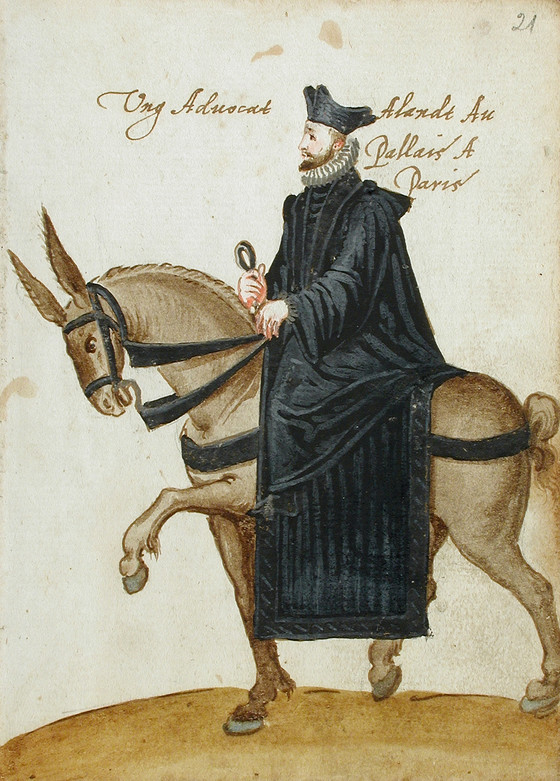 21
Ung Aduocat Alandt Au
Pallais A
Paris